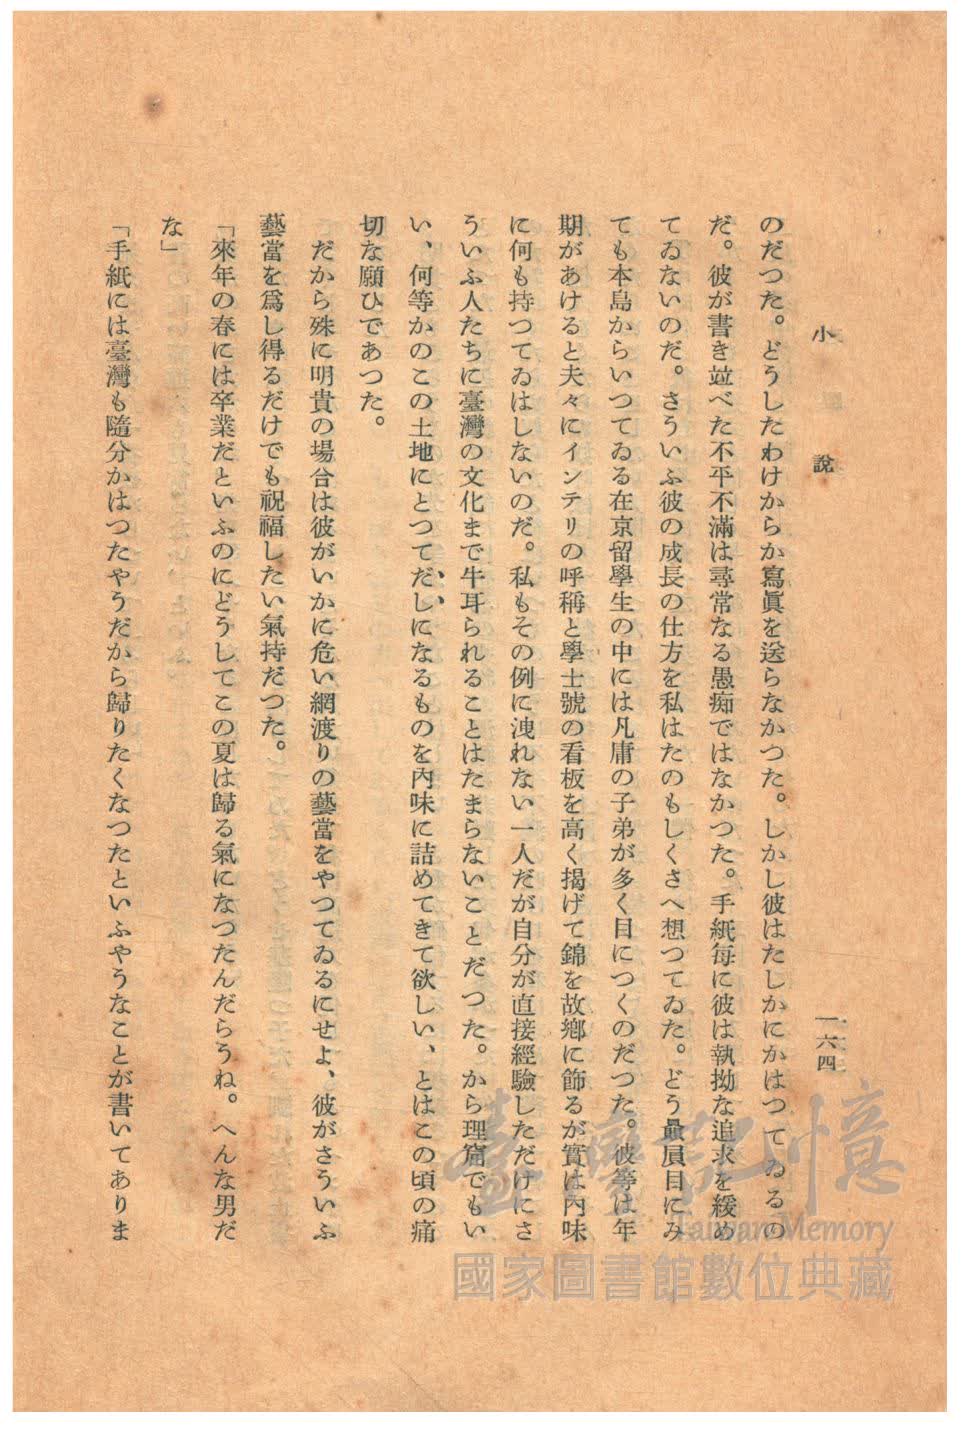 小說
一六四
のだつた。どうしたわけからか寫眞を送らなかつた。しかし彼はたしかにかはつてゐるの
だ。彼が書き竝べた不平不滿は尋常なる愚痴ではなかつた。手紙每に彼は執拗な追求を緩め
てゐないのだ。さういふ彼の成長の仕方を私はたのもしくさへ想つてゐた。どう贔屓目にみ
ても本島からいつてゐる在京留學生の中には凡庸の子弟が多く目につくのだつた。彼等は年
期があけると夫々にインテリの呼稱と學士號の看板を高く揭げて錦を故鄕に飾るが實は內味
に何も持つてゐはしないのだ。私もその例に洩れない一人だが自分が直接經驗しただけにさ
ういふ人たちに臺灣の文化まで牛耳られることはたまらないことだつた。から理窟でもい
い、何等かのこの土地にとつてだしになるものを內味に詰めてきて欲しい、とはこの頃の痛
切な願ひであつた。
だから殊に明貴の場合は彼がいかに危い綱渡りの藝當をやつてゐるにせよ、彼がさういふ
藝當を爲し得るだけでも祝福したい氣持だつた。
「來年の春には卒業だといふのにどうしてこの夏は歸る氣になつたんだらうね。へんな男だ
な」
「手紙には臺灣も隨分かはつたやうだから歸りたくなつたといふやうなことが書いてありま
臺灣記憶
Taiwan Memory
國家圖書館數位典藏